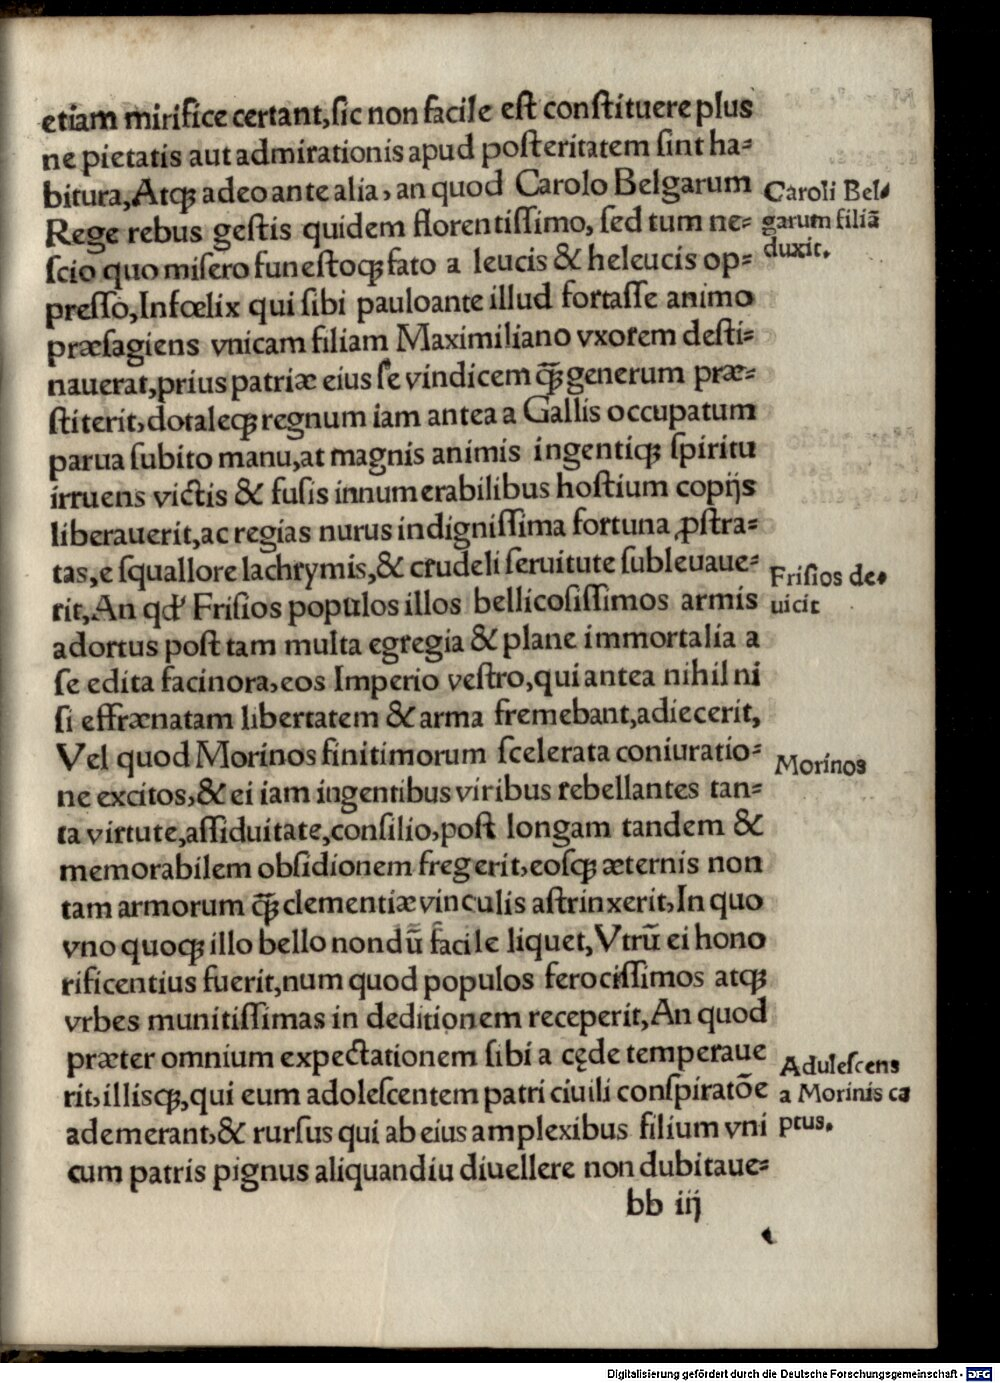 etiam mirifice certant,ſic non facile eſt conſtituere plus
ne pietatis aut admirationis apud poſteritatem ſint ha⸗
bitura,Atqꝫ adeo ante alia, an quod Carolo Belgarum
Rege rebus geſtis quidem florentiſſimo, ſed tum ne⸗
ſcio quo miſero funeſtoqꝫ fato a leucis & heleucis op⸗
preſſo,Infœlix qui ſibi pauloante illud fortaſſe animo
præſagiens vnicam filiam Maximiliano vxorem deſti⸗
nauerat,prius patriæ eius ſe vindicem q̃ꝫ generum præ⸗
ſtiterit,dotaleqꝫ regnum iam antea a Gallis occupatum
parua ſubito manu,at magnis animis ingentiqꝫ ſpiritu
irruens victis & fuſis innumerabilibus hoſtium copijs
liberauerit,ac regias nurus indigniſſima fortuna ꝓſtra⸗
tas,e ſquallore lachrymis,& crudeli ſeruitute ſubleuaue⸗
rit,An qd' Friſios populos illos bellicoſiſſimos armis
adortus poſt tam multa egregia & plane immortalia a
ſe edita facinora,eos Imperio veſtro,qui antea nihil ni
ſi effrænatam libertatem & arma fremebant,adiecerit,
Vel quod Morinos finitimorum ſcelerata coniuratio⸗
ne excitos,& ei iam ingentibus viribus rebellantes tan⸗
ta virtute,aſſiduitate,conſilio,poſt longam tandem &
memorabilem obſidionem fregerit,eoſqꝫ æternis non
tam armorum q̃ꝫ clementiæ vinculis aſtrinxerit,In quo
vno quoqꝫ illo bello nondū facile liquet,Vtrū ei hono
rificentius fuerit,num quod populos ferociſſimos atqꝫ
vrbes munitiſſimas in deditionem receperit,An quod
præter omnium expectationem ſibi a cęde temperaue
rit,illiſqꝫ,qui eum adoleſcentem patri ciuili conſpiratōe
ademerant,& rurſus qui ab eius amplexibus filium vni
cum patris pignus aliquandiu diuellere non dubitaue⸗
bb iij
Caroli Bel⸗
garum filiā
duxit.
Friſios de⸗
uicit
Morinos
Aduleſcens
a Morinis ca
ptus.
Digitalisierung gefördert durch die Deutsche Forschungsgemeinschaft - DFG